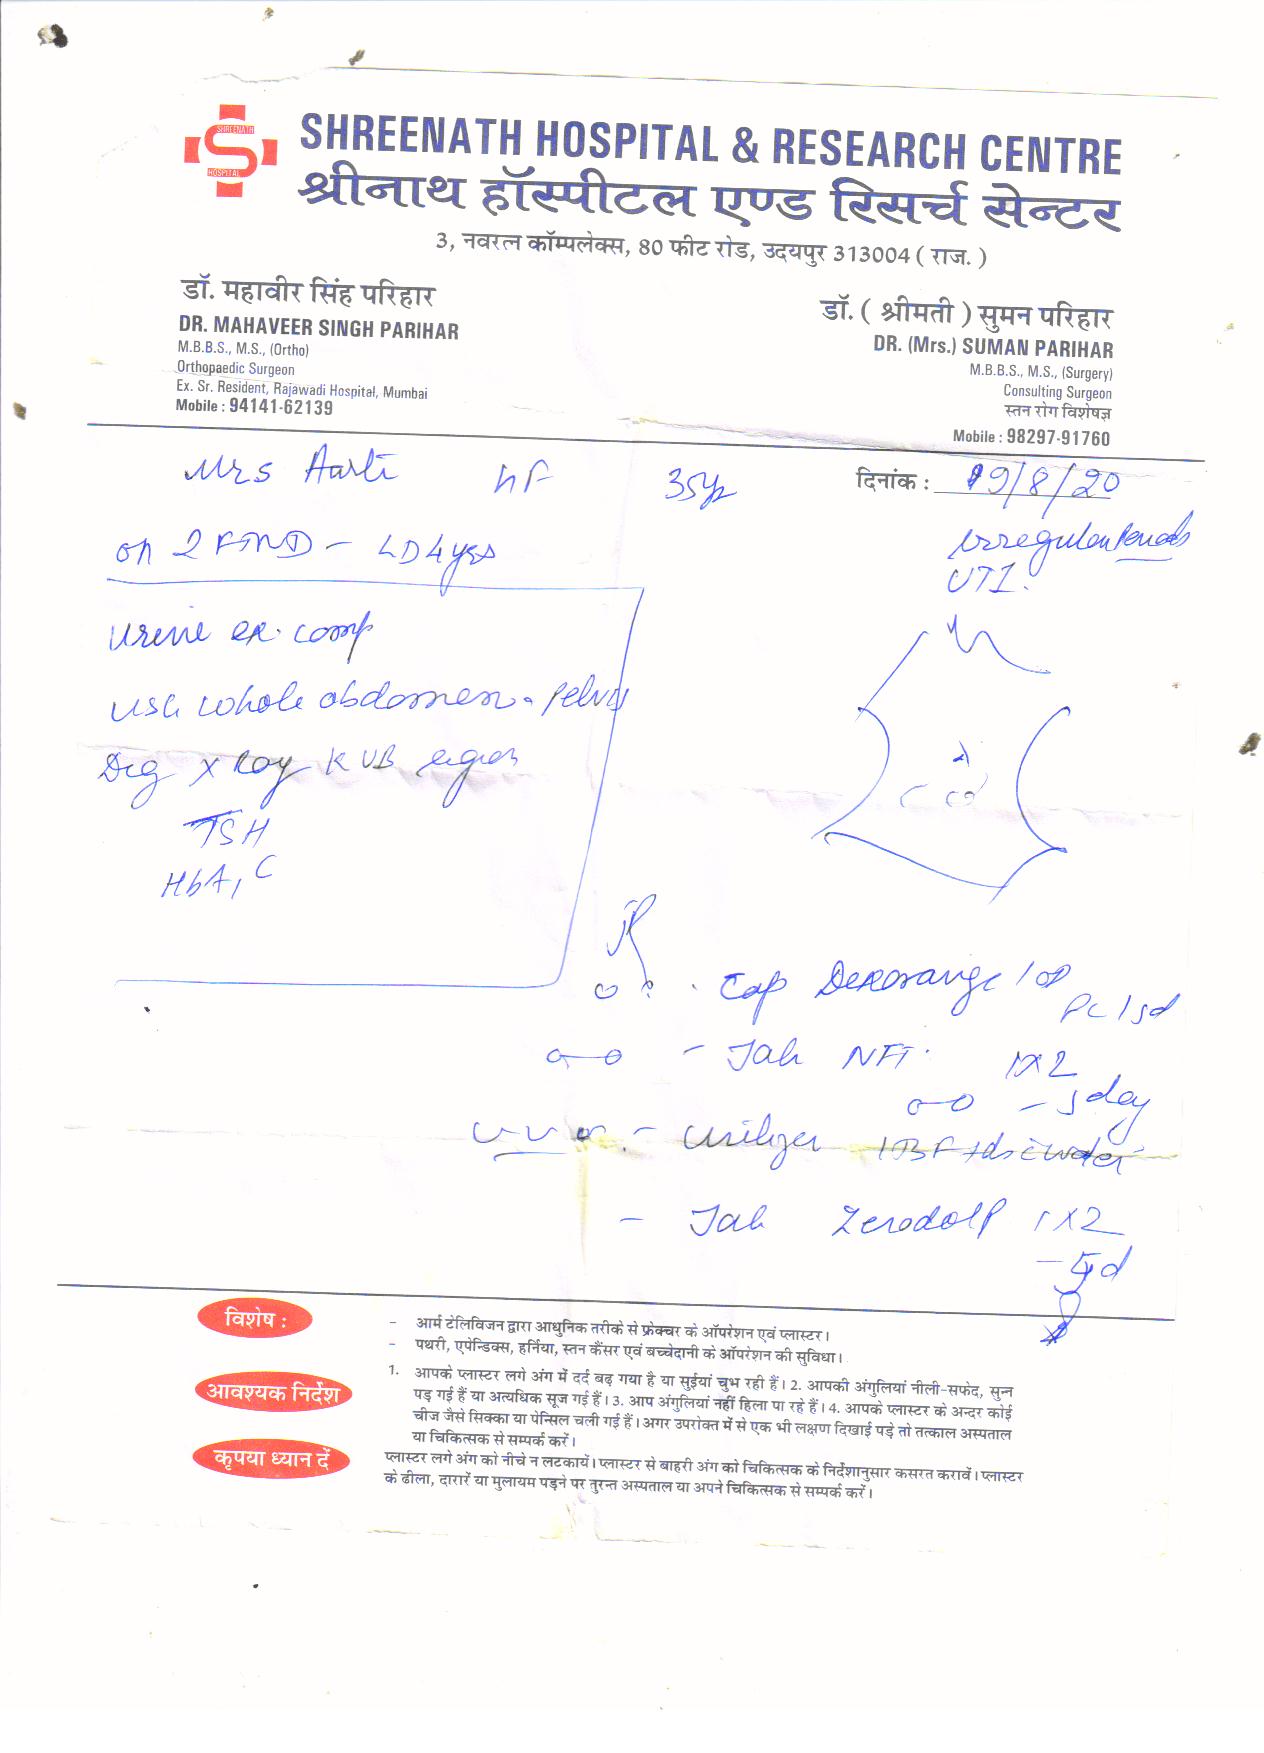 SHREENATH HOSPITAL
SHREENATH HOSPITAL & RESEARCH CENTRE
श्रीनाथ हॉस्पीटल एण्ड रिसर्च सेन्टर
3, नवरत्न कॉम्पलेक्स, 80 फीट रोड, उदयपुर 313004 ( राज. )
डॉ. महावीर सिंह परिहार
DR. MAHAVEER SINGH PARIHAR
M.B.B.S., M.S., (Ortho)
Orthopaedic Surgeon
Ex. Sr. Resident, Rajawadi Hospital, Mumbai
Mobile : 94141-62139
डॉ. ( श्रीमती ) सुमन परिहार
DR. (Mrs.) SUMAN PARIHAR
M.B.B.S., M.S., (Surgery)
Consulting Surgeon
स्तन रोग विशेषज्ञ
Mobile : 98297-91760
Mrs Aarti 35yr दिनांक : 19/8/20
on 2 FTND - LD 4yrs
irregular Periods
UTI.
urine ex. comp
USG whole abdomen - Pelvis
Dig X Ray KUB region
TSH
HbA1C
R
Cap Dexorange 1 OD
PC 15d
- Tab NFT 1X2
- 5 day
- Urilizer
- Tab Zerodol P 1X2
- 5d
विशेष :
- आर्म टेलिविजन द्वारा आधुनिक तरीके से फ्रेक्चर के ऑपरेशन एवं प्लास्टर।
- पथरी, एपेन्डिक्स, हर्निया, स्तन कैंसर एवं बच्चेदानी के ऑपरेशन की सुविधा।
आवश्यक निर्देश
1. आपके प्लास्टर लगे अंग में दर्द बढ़ गया है या सुईयां चुभ रही हैं। 2. आपकी अंगुलियां नीली-सफेद, सुन्न
पड़ गई हैं या अत्यधिक सूज गई हैं। 3. आप अंगुलियां नहीं हिला पा रहे हैं। 4. आपके प्लास्टर के अन्दर कोई
चीज जैसे सिक्का या पेन्सिल चली गई हैं। अगर उपरोक्त में से एक भी लक्षण दिखाई पड़े तो तत्काल अस्पताल
या चिकित्सक से सम्पर्क करें।
कृपया ध्यान दें
प्लास्टर लगे अंग को नीचे न लटकायें। प्लास्टर से बाहरी अंग को चिकित्सक के निर्देशानुसार कसरत करावें। प्लास्टर
के ढीला, दारारें या मुलायम पड़ने पर तुरन्त अस्पताल या अपने चिकित्सक से सम्पर्क करें।